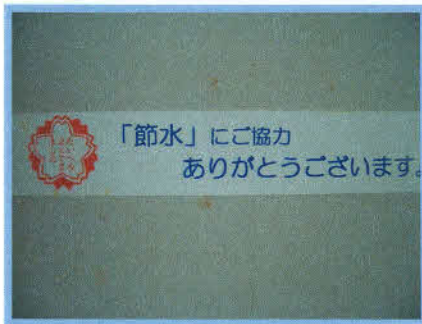 「節水」にご協力
ありがとうございます。